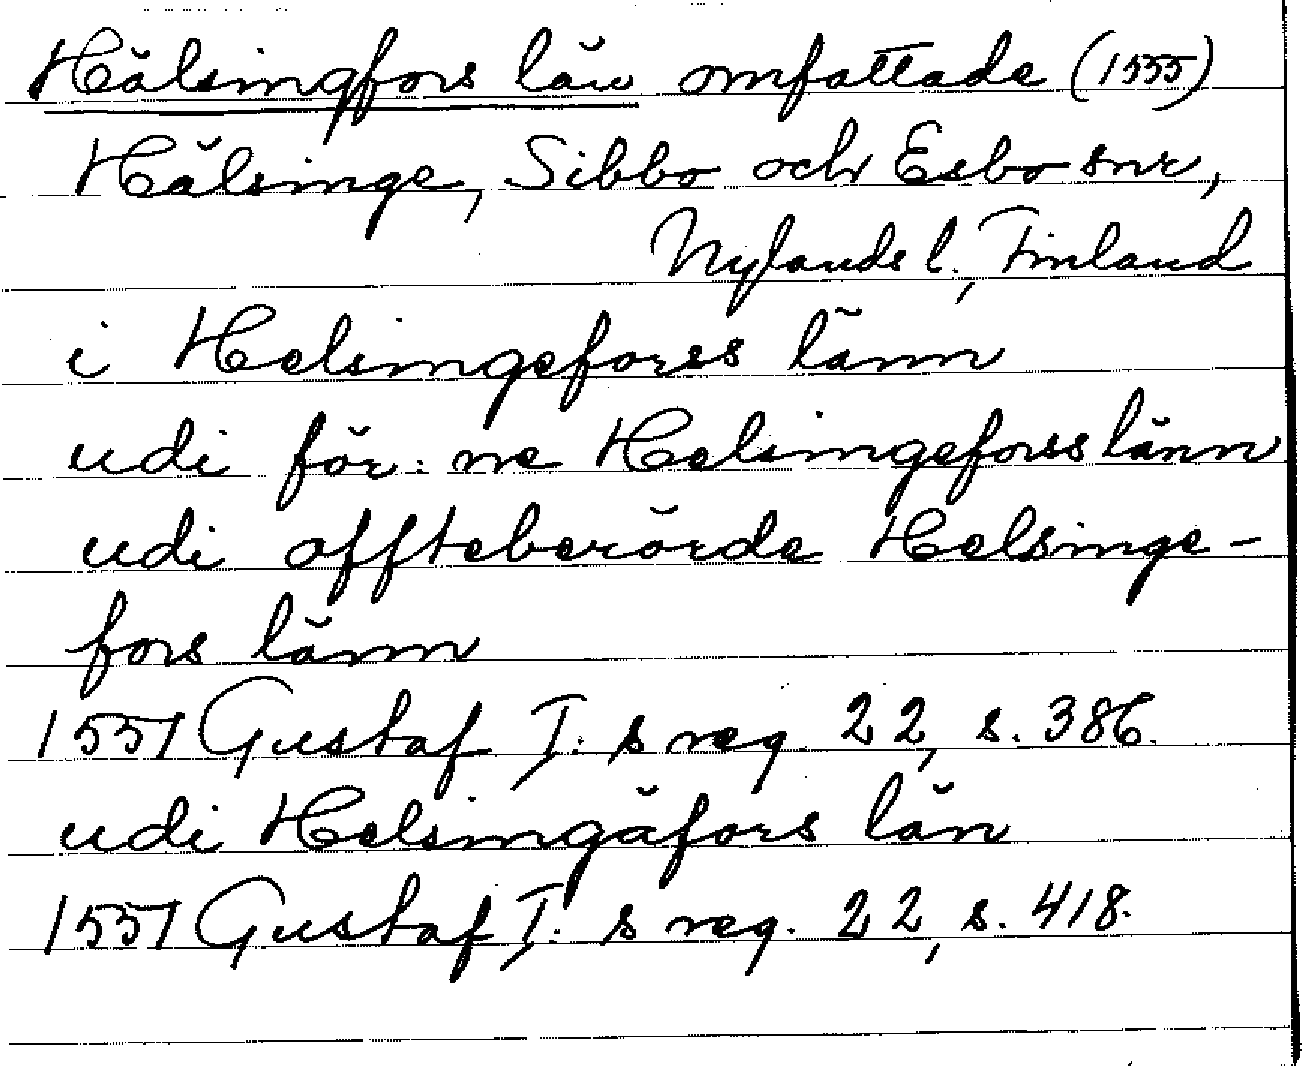 Hälsingfors län omfattade (1555)
Hälsinge, Sibbo och Esbo snr,
Nylands l., Finland
i Helsingeforss länn
udi för:ne Helsingeforss länn
udi affteberörde Helsinge-
fors länn
1551 Gustaf I:s reg. 22, s. 386.
udi Helsingäfors län
1551 Gustaf I:s reg. 22, s. 418.